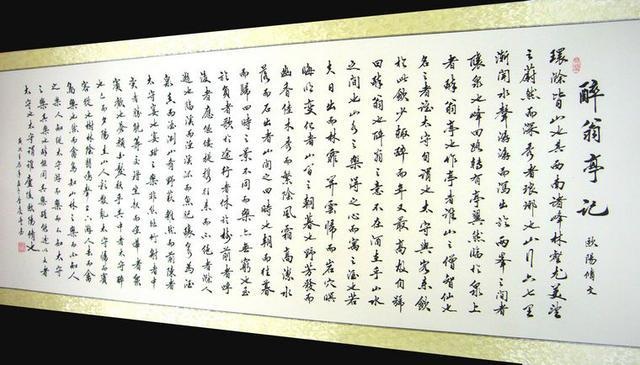 醉翁亭记
欧陽修文
環滁皆山也其西南諸峰林壑尤美望
之蔚然而深秀者琅琊也山行六七里
漸闻水聲潺潺而瀉出於兩峯之间者
釀泉也峰回路轉有亭翼然臨於泉上
者醉翁亭也作亭者誰山之僧智仙也
名之者誰太守自謂也太守與客來飲
於此飲少輒醉而年又最高故自號
曰醉翁也醉翁之意不在酒在乎山水
之间也山水之樂得之心而寓之酒也若
夫日出而林霏開雲歸而岩穴暝
晦明變化者山间之朝暮也野芳發而
幽香佳木秀而繁陰風霜高潔水
落而石出者山间之四時也朝而往暮
而歸四時之景不同而樂亦無窮也至
於負者歌於途行者休於樹前者呼
後者應傴僂提攜往來而不絕者滁人
遊也臨溪而漁溪深而魚肥釀泉為酒
泉香而酒洌山肴野蔌雜然而前陳者
太守宴也宴酣之樂非絲非竹射者中
弈者勝觥籌交錯坐起而喧嘩者衆
賓歡也蒼顏白髮頹乎其中者太守醉
也已而夕陽在山人影散亂太守歸而賓
客從也樹林陰翳鳴聲上下遊人去而禽
鳥樂也然而禽鳥知山林之樂而不知人
之樂人知從太守遊而樂而不知太守
之樂其樂也醉能同其樂醒能述以文者
太守也太守謂誰廬陵歐陽修也